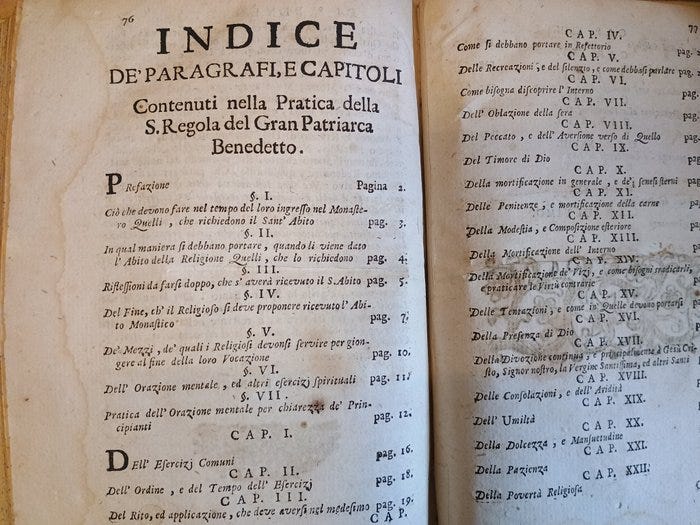 76
INDICE
DE' PARAGRAFI, E CAPITOLI
Contenuti nella Pratica della
S. Regola del Gran Patriarca
Benedetto.
PRefazione Pagina 2.
§. I.
Ciò che devono fare nel tempo del loro ingresso nel Monaste-
ro Quelli, che richiedono il Sant' Abito pag. 3.
§. II.
In qual maniera si debbano portare, quando li viene dato
l'Abito della Religione Quelli, che lo richiedono pag. 4.
§. III.
Riflessioni da farsi doppo, che s' averà ricevuto il S. Abito pag. 5.
§. IV.
Del Fine, ch' il Religioso si deve proponere ricevuto l' Abi-
to Monastico pag. 7.
§. V.
De' Mezzi, de' quali i Religiosi devonsi servire per gion-
gere al fine della loro Vocazione pag. 10.
§. VI.
Dell' Orazione mentale, ed altri esercizj spirituali pag. 11.
§. VII.
Pratica dell' Orazione mentale per chiarezza de' Prin-
cipianti pag. 12.
CAP. I.
DEll' Esercizj Comuni pag. 16.
CAP. II.
Dell' Ordine, e del Tempo dell' Esercizj pag. 18.
CAP. III.
Del Rito, ed applicazione, che deve aversi nel medesimo pag. 19.
CAP.
77
CAP. IV.
Come si debbano portare in Refettorio pag.
CAP. V.
Delle Recreazioni, e del silenzio, e come debbasi parlare pag.
CAP. VI.
Come bisogna discoprire l' Interno pag.
CAP. VII.
Dell' Oblazione della sera pag.
CAP. VIII.
Del Peccato, e dell' Aversione verso di Quello pag.
CAP. IX.
Del Timore di Dio pag.
CAP. X.
Della mortificazione in generale, e de' sensi esterni pag.
CAP. XI.
Delle Penitenze, e mortificazione della carne pag.
CAP. XII.
Della Modestia, e Composizione esteriore pag.
CAP. XIII.
Della Mortificazione dell' Interno pag.
CAP. XIV.
Della Mortificazione de' Vizj, e come bisogni sradicarli,
e praticare le Virtù contrarie pag.
CAP. XV.
Delle Tentazioni, e come in Quelle devono portarsi
CAP. XVI.
Della Presenza di Dio
CAP. XVII.
Della Divozione continua, e principalmente à Gesù Cri-
sto, Signor nostro, la Vergine Santissima, ed altri Santi
CAP. XVIII.
Delle Consolazioni, e dell' Aridità
CAP. XIX.
Dell' Umiltà
CAP. XX.
Della Dolcezza, e Mansuetudine
CAP. XXI.
Della Pazienza
CAP. XXII.
Della Povertà Religiosa